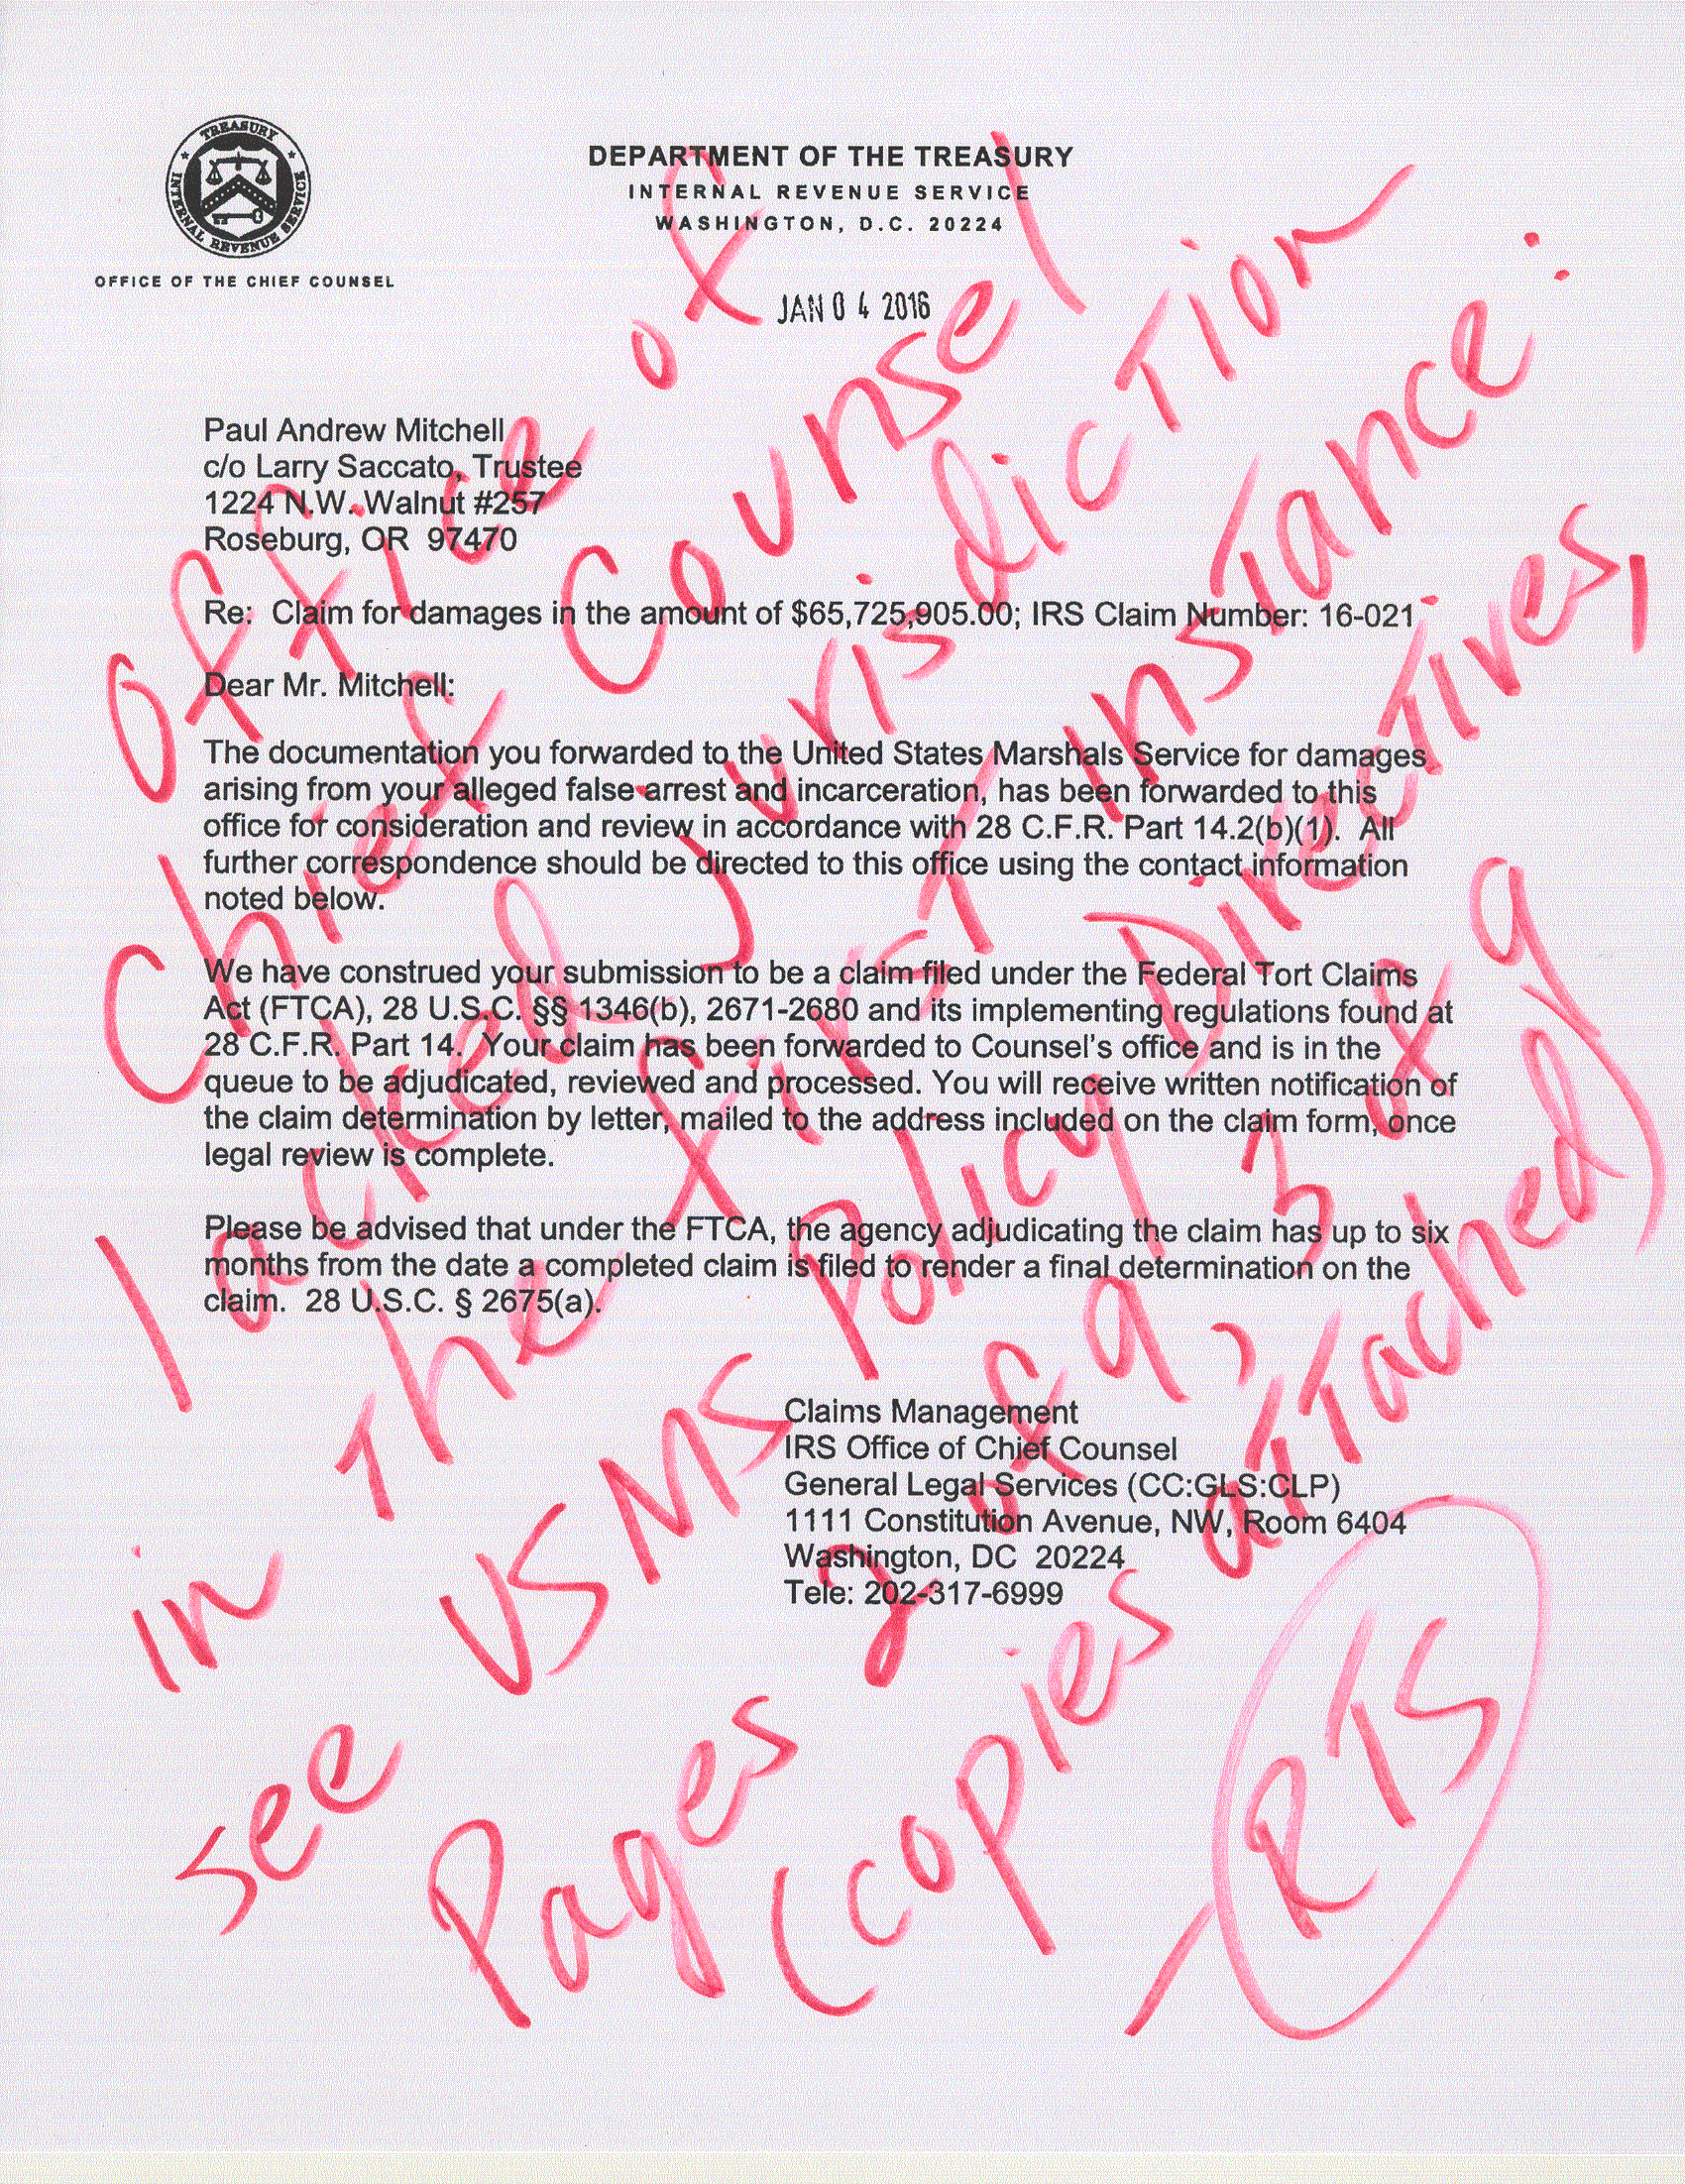 TREASURY
INTERNAL REVENUE SERVICE
OFFICE OF THE CHIEF COUNSEL
DEPARTMENT OF THE TREASURY
INTERNAL REVENUE SERVICE
WASHINGTON, D.C. 20224
JAN 04 2016
Paul Andrew Mitchell
c/o Larry Saccato, Trustee
1224 N.W. Walnut #257
Roseburg, OR 97470
Re: Claim for damages in the amount of $65,725,905.00; IRS Claim Number: 16-021
Dear Mr. Mitchell:
The documentation you forwarded to the United States Marshals Service for damages
arising from your alleged false arrest and incarceration, has been forwarded to this
office for consideration and review in accordance with 28 C.F.R. Part 14.2(b)(1). All
further correspondence should be directed to this office using the contact information
noted below.
We have construed your submission to be a claim filed under the Federal Tort Claims
Act (FTCA), 28 U.S.C. §§ 1346(b), 2671-2680 and its implementing regulations found at
28 C.F.R. Part 14. Your claim has been forwarded to Counsel's office and is in the
queue to be adjudicated, reviewed and processed. You will receive written notification of
the claim determination by letter, mailed to the address included on the claim form, once
legal review is complete.
Please be advised that under the FTCA, the agency adjudicating the claim has up to six
months from the date a completed claim is filed to render a final determination on the
claim. 28 U.S.C. § 2675(a).
Claims Management
IRS Office of Chief Counsel
General Legal Services (CC:GLS:CLP)
1111 Constitution Avenue, NW, Room 6404
Washington, DC 20224
Tele: 202-317-6999
Office of
Chief Counsel
lacked jurisdiction
in the first instance:
see USMS Policy Directives,
Pages 2 of 9, 3 of 9
(copies attached)
RTS